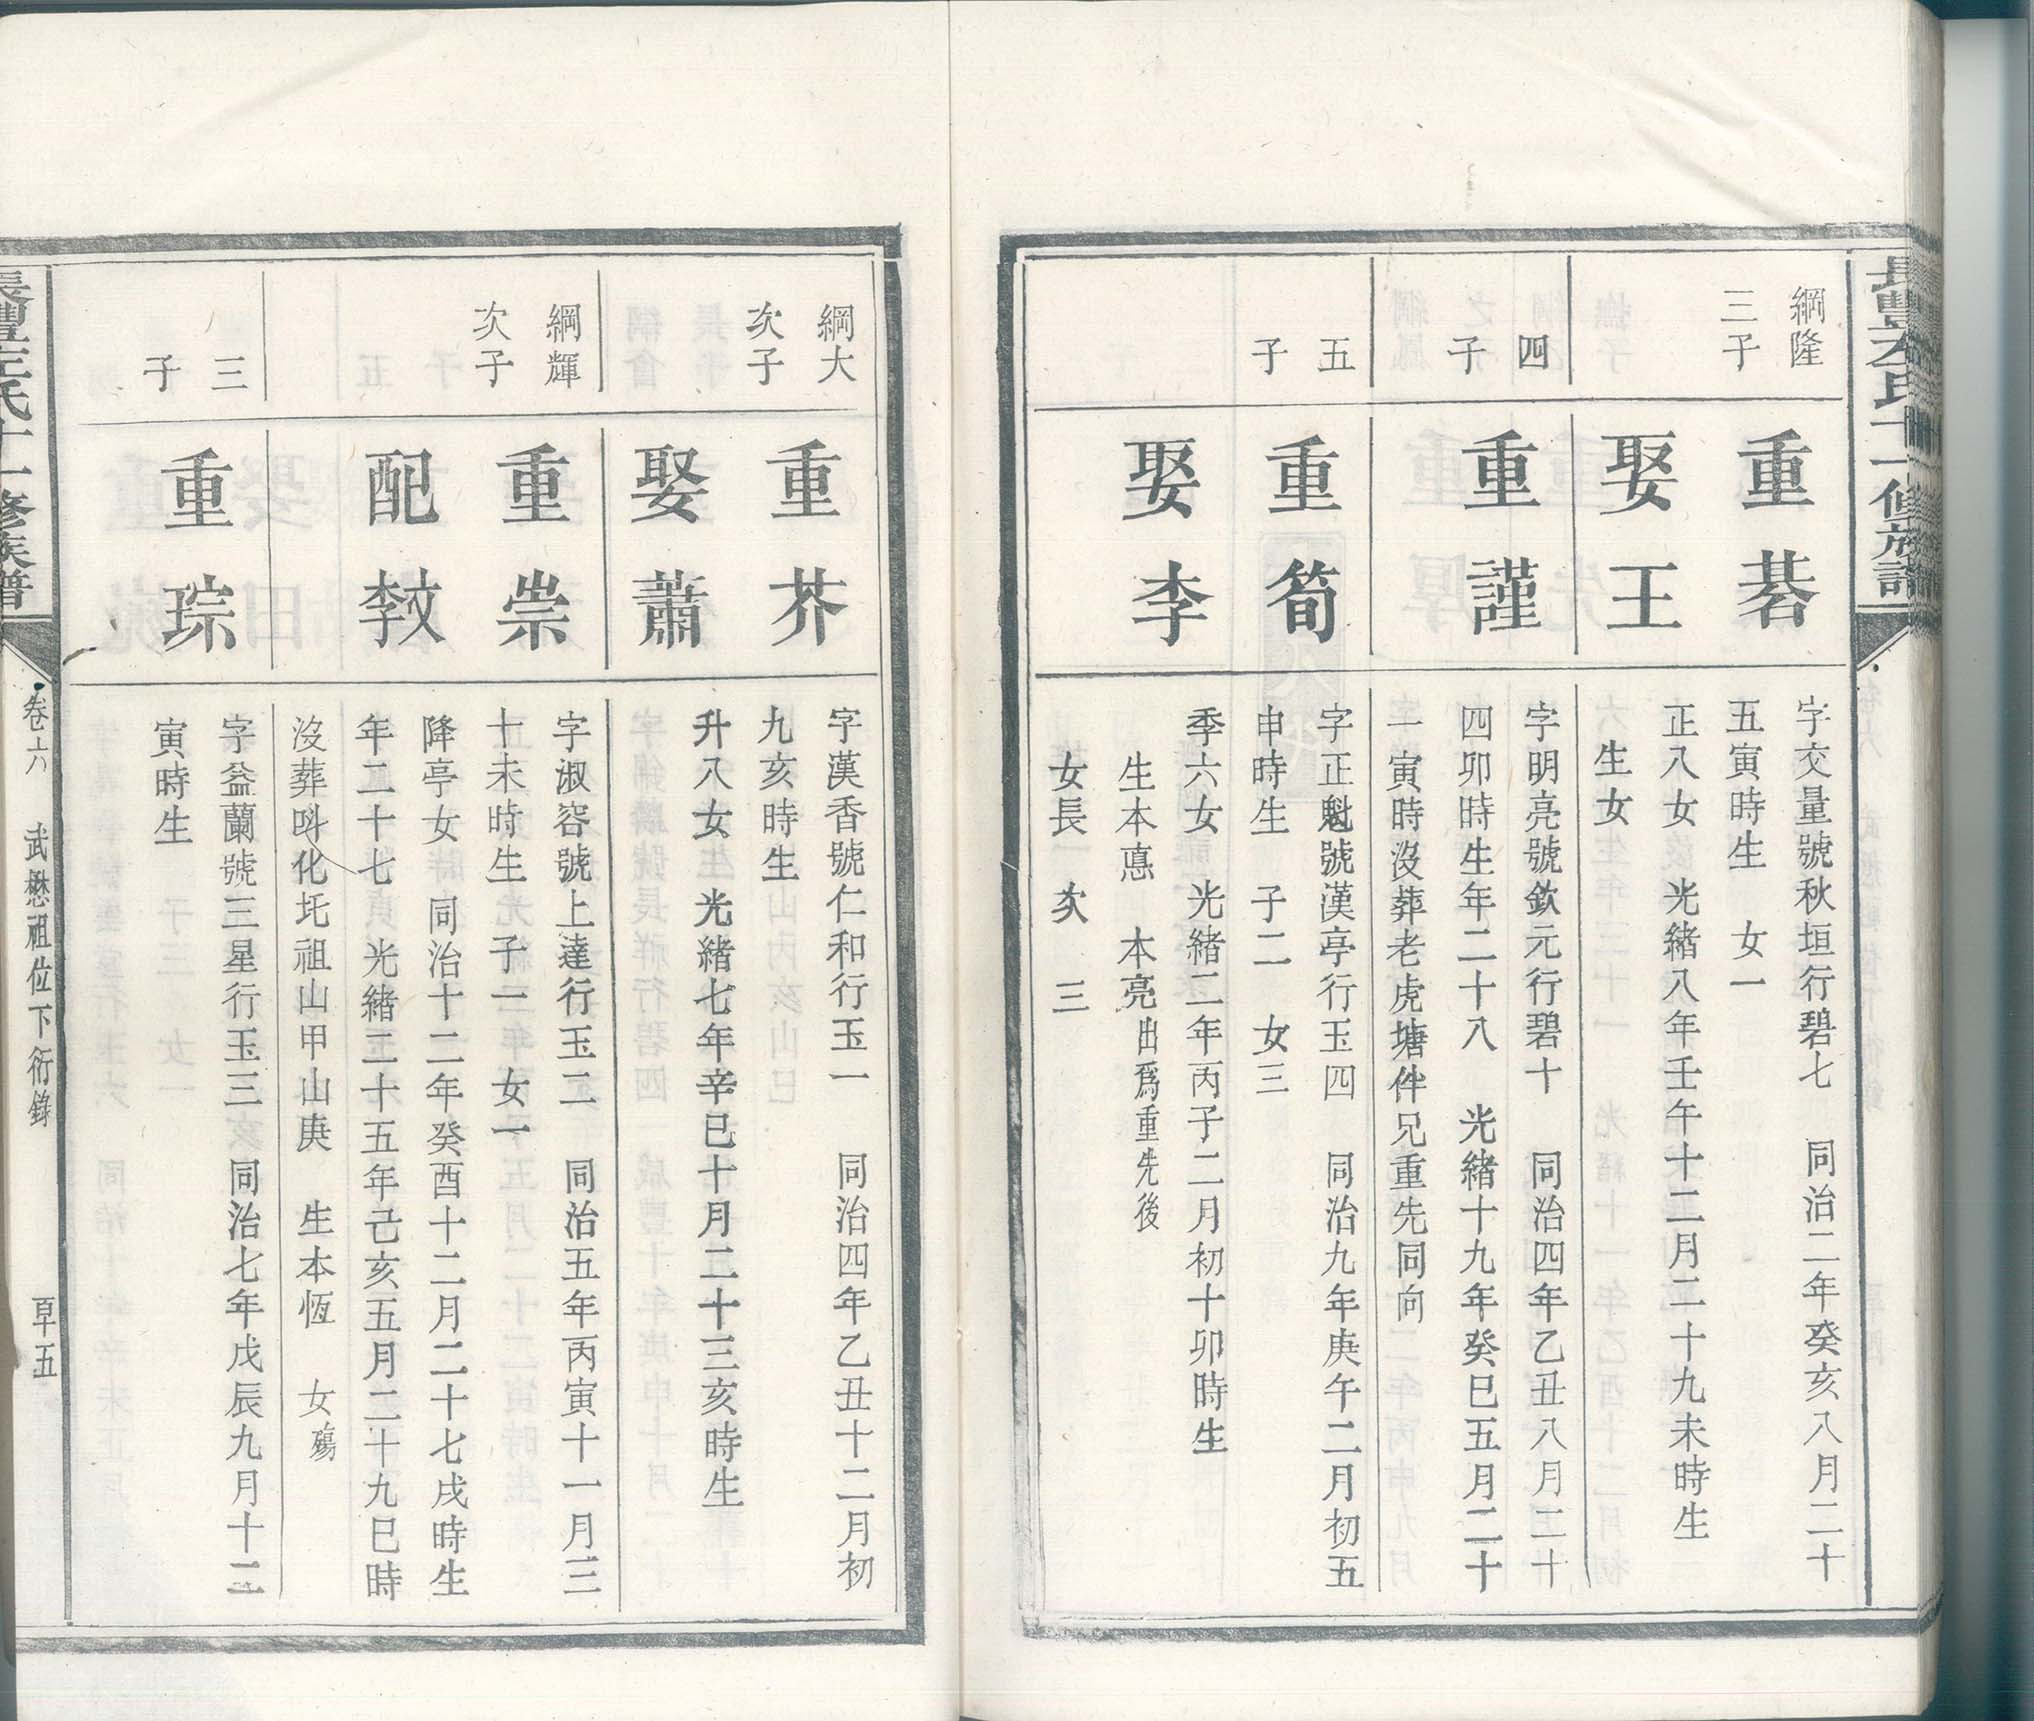 長豐左氏十一修族譜
綱隆
三子
重碁
娶王
字交量號秋垣行碧七　同治二年癸亥八月二十
五寅時生　女一
正八女　光緒八年壬午十二月二十九未時生
生女
四
子
重謹
字明亮號欽元行碧十　同治四年乙丑八月二十
四卯時生年二十八　光緒十九年癸巳五月二十
一寅時沒葬老虎塘伴兄重先同向
五
子
重筍
娶李
字正魁號漢亭行玉四　同治九年庚午二月初五
申時生　子二　女三
季六女　光緒二年丙子二月初十卯時生
生本惪　本亮出爲重先後
女長　次　三
綱大
次子
重芥
娶蕭
字漢香號仁和行玉一　同治四年乙丑十二月初
九亥時生
升八女　光緒七年辛巳十月二十三亥時生
綱輝
次子
重崇
配李文
字淑容號上達行玉二　同治五年丙寅十一月三
十未時生　子一　女一
降亭女　同治十二年癸酉十二月二十七戌時生
年二十七　光緒二十五年己亥五月二十九巳時
沒葬化圫祖山甲山庚　生本恆　女殤
三
子
重琮
字益蘭號三星行玉三　同治七年戊辰九月十二
寅時生
長豐左氏十一修族譜
卷六　武懋祖位下衍錄
五